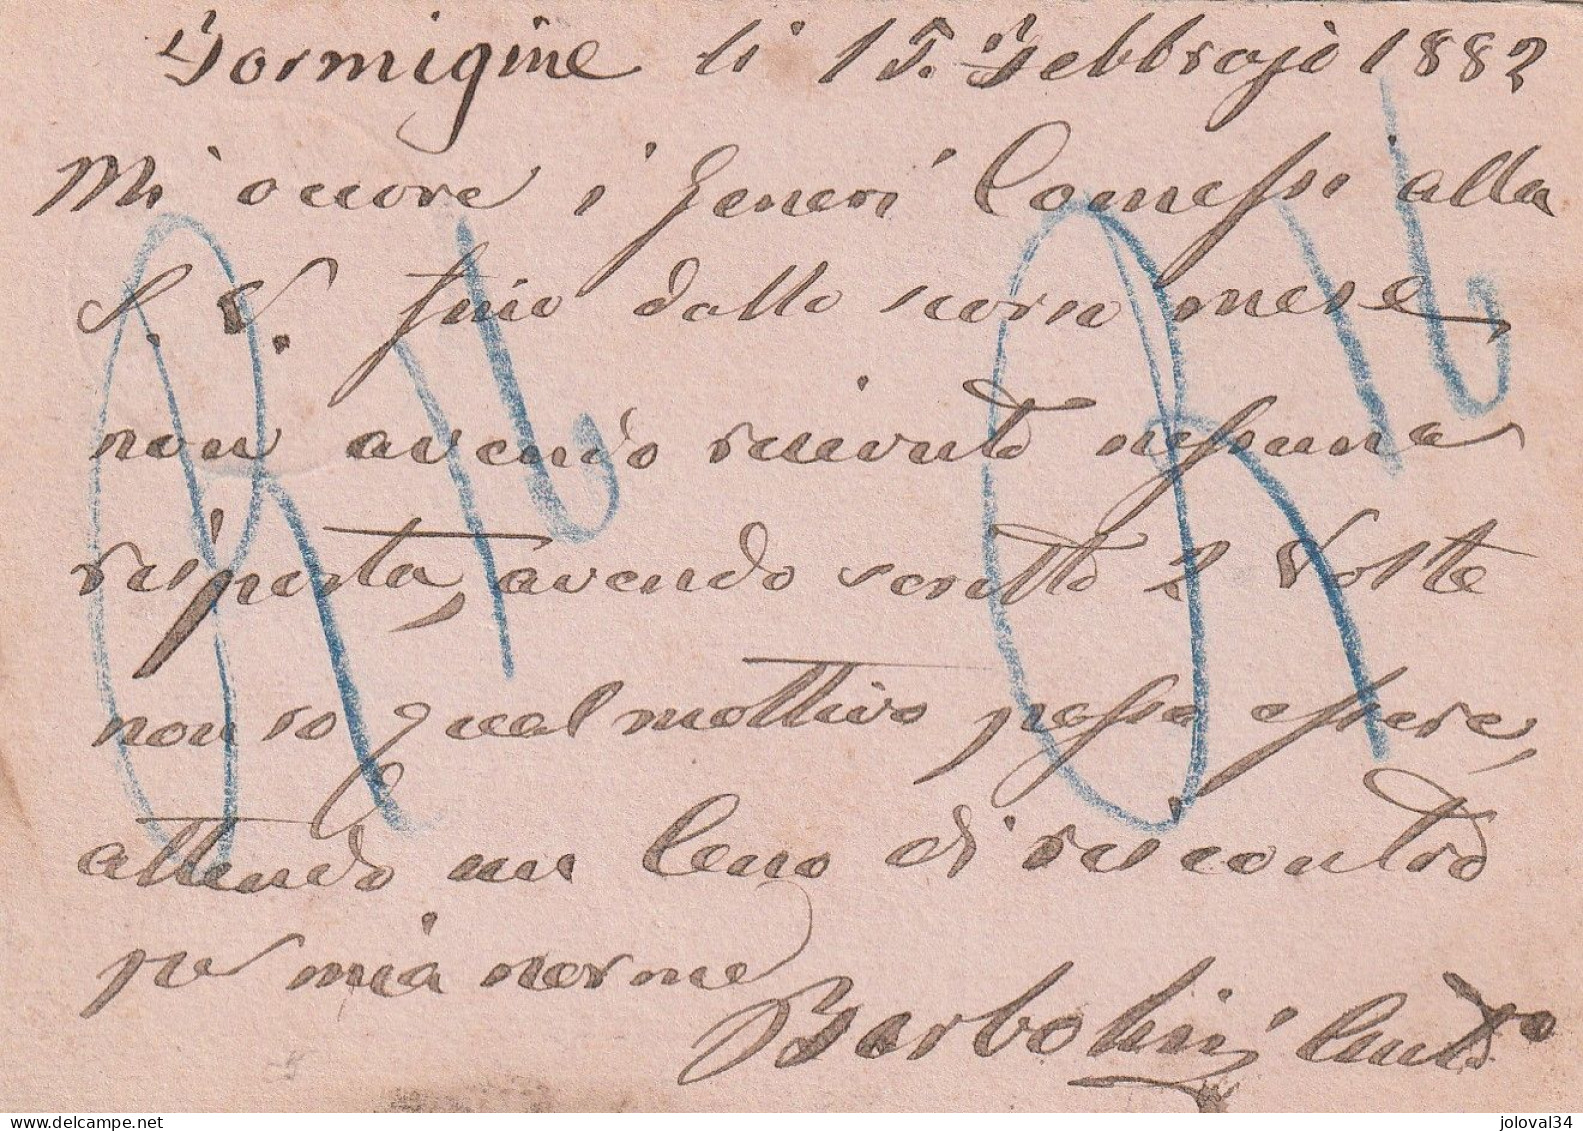 Formigine li 15. Febbrajo 1882
Mi occore i Generi Comessi alla
S. V. fino dallo scorso mese,
non avendo ricevuto nessuna
risposta, avendo scritto 2 Volte
non so qual mottivo possa essere,
attendo un Ceno di riscontro
per mia norma
Barbolini
www.delcampe.net
joloval34